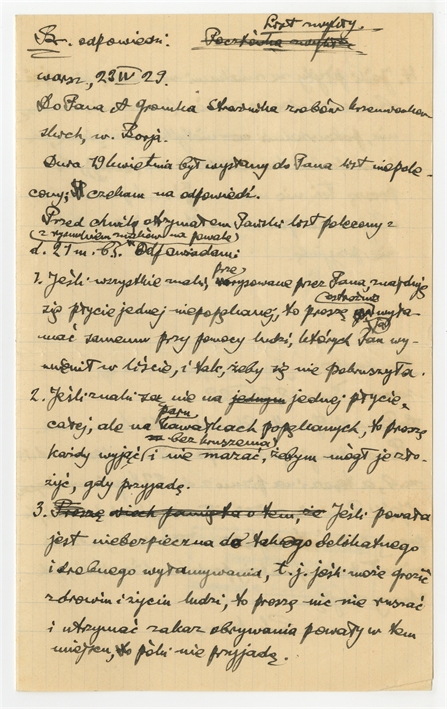 Br. odpowiedzi: Pocztówka zwykła List zwykły.
Warsz, 23 IV 29.
Do Pana A Gromka Strażnika zrębów krzemionkow-
skich, w. Borja.
Dnia 19 kwietnia był wysłany do Pana list niepole-
cony; czekam na odpowiedź.
Przed chwilą otrzymałem Pański list polecony z
(z rysunkiem znaków na powale)
d. 21 m. b. Odpowiadam:
1. Jeśli wszystkie znaki, prze rysowane przez Pana, znajdują
się płycie jednej niepopękanej, to proszę ostrożnie wyła-
mać samemu przy pomocy ludzi, których Pan wy-
mienił w liście, i tak, żeby się nie pokruszyła.
2. Jeśli znaki są nie na jednym jednej płycie,
całej, ale na paru kawałkach popękanych, to proszę
każdy wyjąć (bez kruszenia) i nie mazać, żebym mógł je zło-
żyć, gdy przyjadę.
3. Proszę niech pamięta o tem, że Jeśli powała
jest niebezpieczna do takiego delikatnego
i drobnego wyłamywania, t. j. jeśli może grozić
zdrowiu i życiu ludzi, to proszę nic nie ruszać
i utrzymać zakaz obrywania powały w tem
miejscu, póki nie przyjadę.